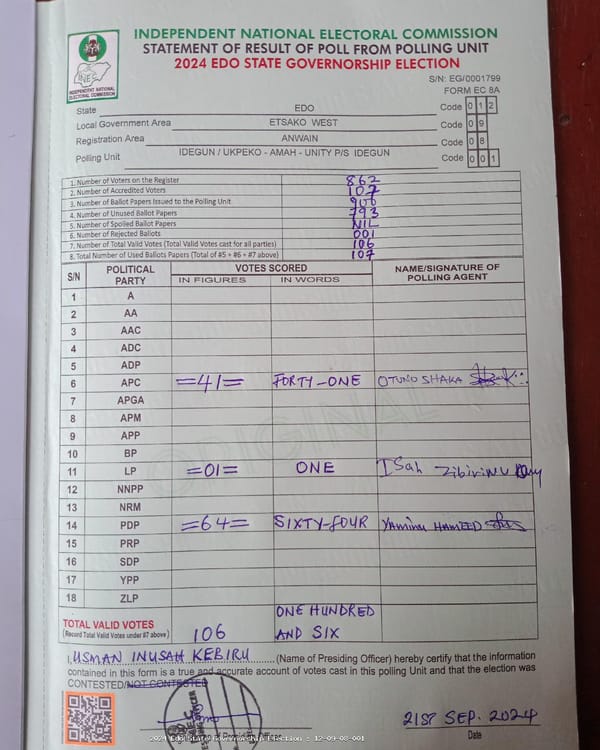 INDEPENDENT NATIONAL ELECTORAL COMMISSION
STATEMENT OF RESULT OF POLL FROM POLLING UNIT
2024 EDO STATE GOVERNORSHIP ELECTION
INEC
INDEPENDENT NATIONAL
ELECTORAL COMMISSION
S/N: EG/0001799
FORM EC 8A
State EDO Code 0 1 2
Local Government Area ETSAKO WEST Code 0 9
Registration Area ANWAIN Code 0 8
Polling Unit IDEGUN / UKPEKO - AMAH - UNITY P/S IDEGUN Code 0 0 1
1. Number of Voters on the Register 862
2. Number of Accredited Voters 107
3. Number of Ballot Papers Issued to the Polling Unit 900
4. Number of Unused Ballot Papers 793
5. Number of Spoiled Ballot Papers NIL
6. Number of Rejected Ballots 001
7. Number of Total Valid Votes (Total Valid Votes cast for all parties) 106
8. Total Number of Used Ballots Papers (Total of #5 + #6 + #7 above) 107
S/N POLITICAL PARTY VOTES SCORED NAME/SIGNATURE OF POLLING AGENT
IN FIGURES IN WORDS
1 A
2 AA
3 AAC
4 ADC
5 ADP
6 APC =41= FORTY-ONE OTUNO SHAKA
7 APGA
8 APM
9 APP
10 BP
11 LP =01= ONE Isah Zibirinu
12 NNPP
13 NRM
14 PDP =64= SIXTY-FOUR Yaminu HAMEED
15 PRP
16 SDP
17 YPP
18 ZLP
ORIGINAL
TOTAL VALID VOTES
(Record Total Valid Votes under #7 above) 106 ONE HUNDRED AND SIX
I, USMAN INUSAH KEBIRU (Name of Presiding Officer) hereby certify that the information
contained in this form is a true and accurate account of votes cast in this polling Unit and that the election was
CONTESTED/NOT CONTESTED
21ST SEP. 2024
Date
2024 Edo State Governorship Election : 12-09-08-001